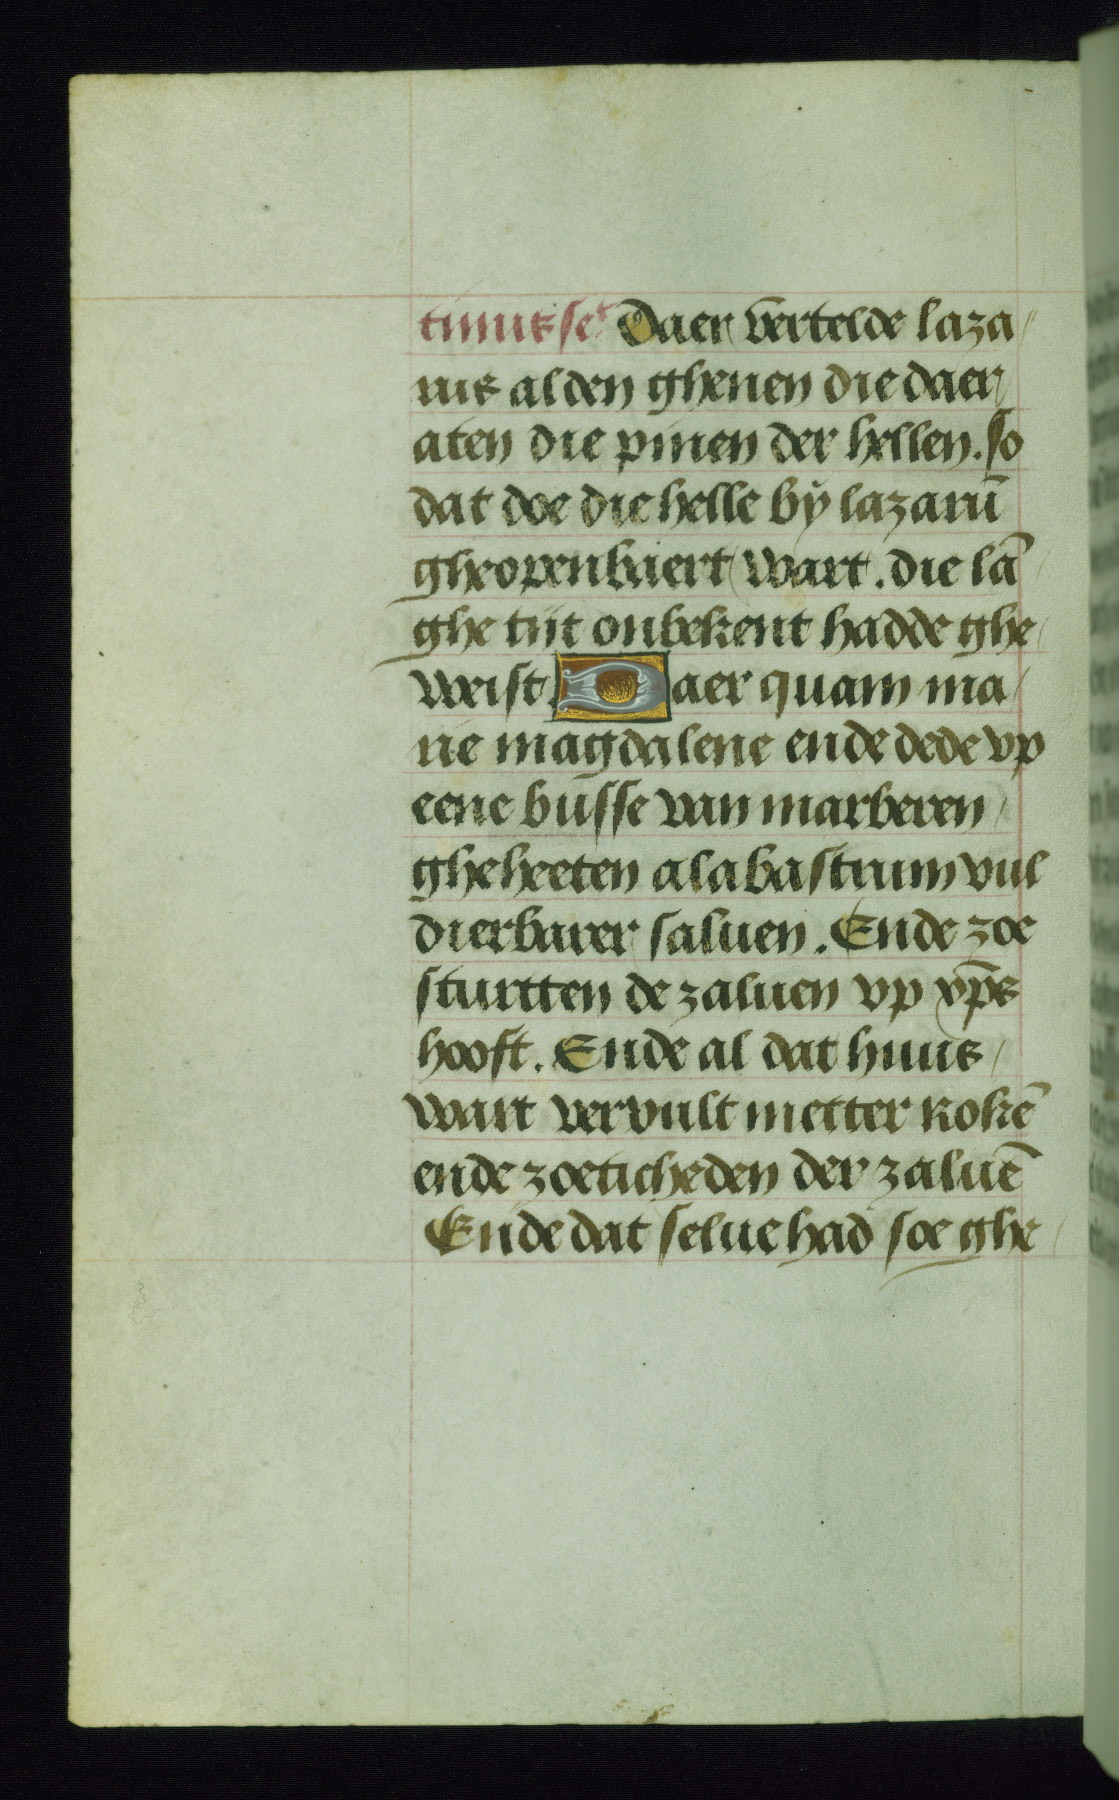 tinus se^t Daer vertelde laza/
rus al den ghenen die daer/
aten die pinen der hellen. so
dat doe die helle bÿ lazarū
gheopenbaert wart. die lā/
ghe tijt onbekent hadde ghe/
weist. Daer quam ma/
rie magdalene ende dede vp
eene busse van marberen/
gheheeten alabastrum vul
dierbarer saluen. Ende zoe
sturtten de zaluen vp xp̄s
hooft. Ende al dat huus/
wart vervult metter rokē
ende zoeticheden der zaluē
Ende dat selue had soe ghe/